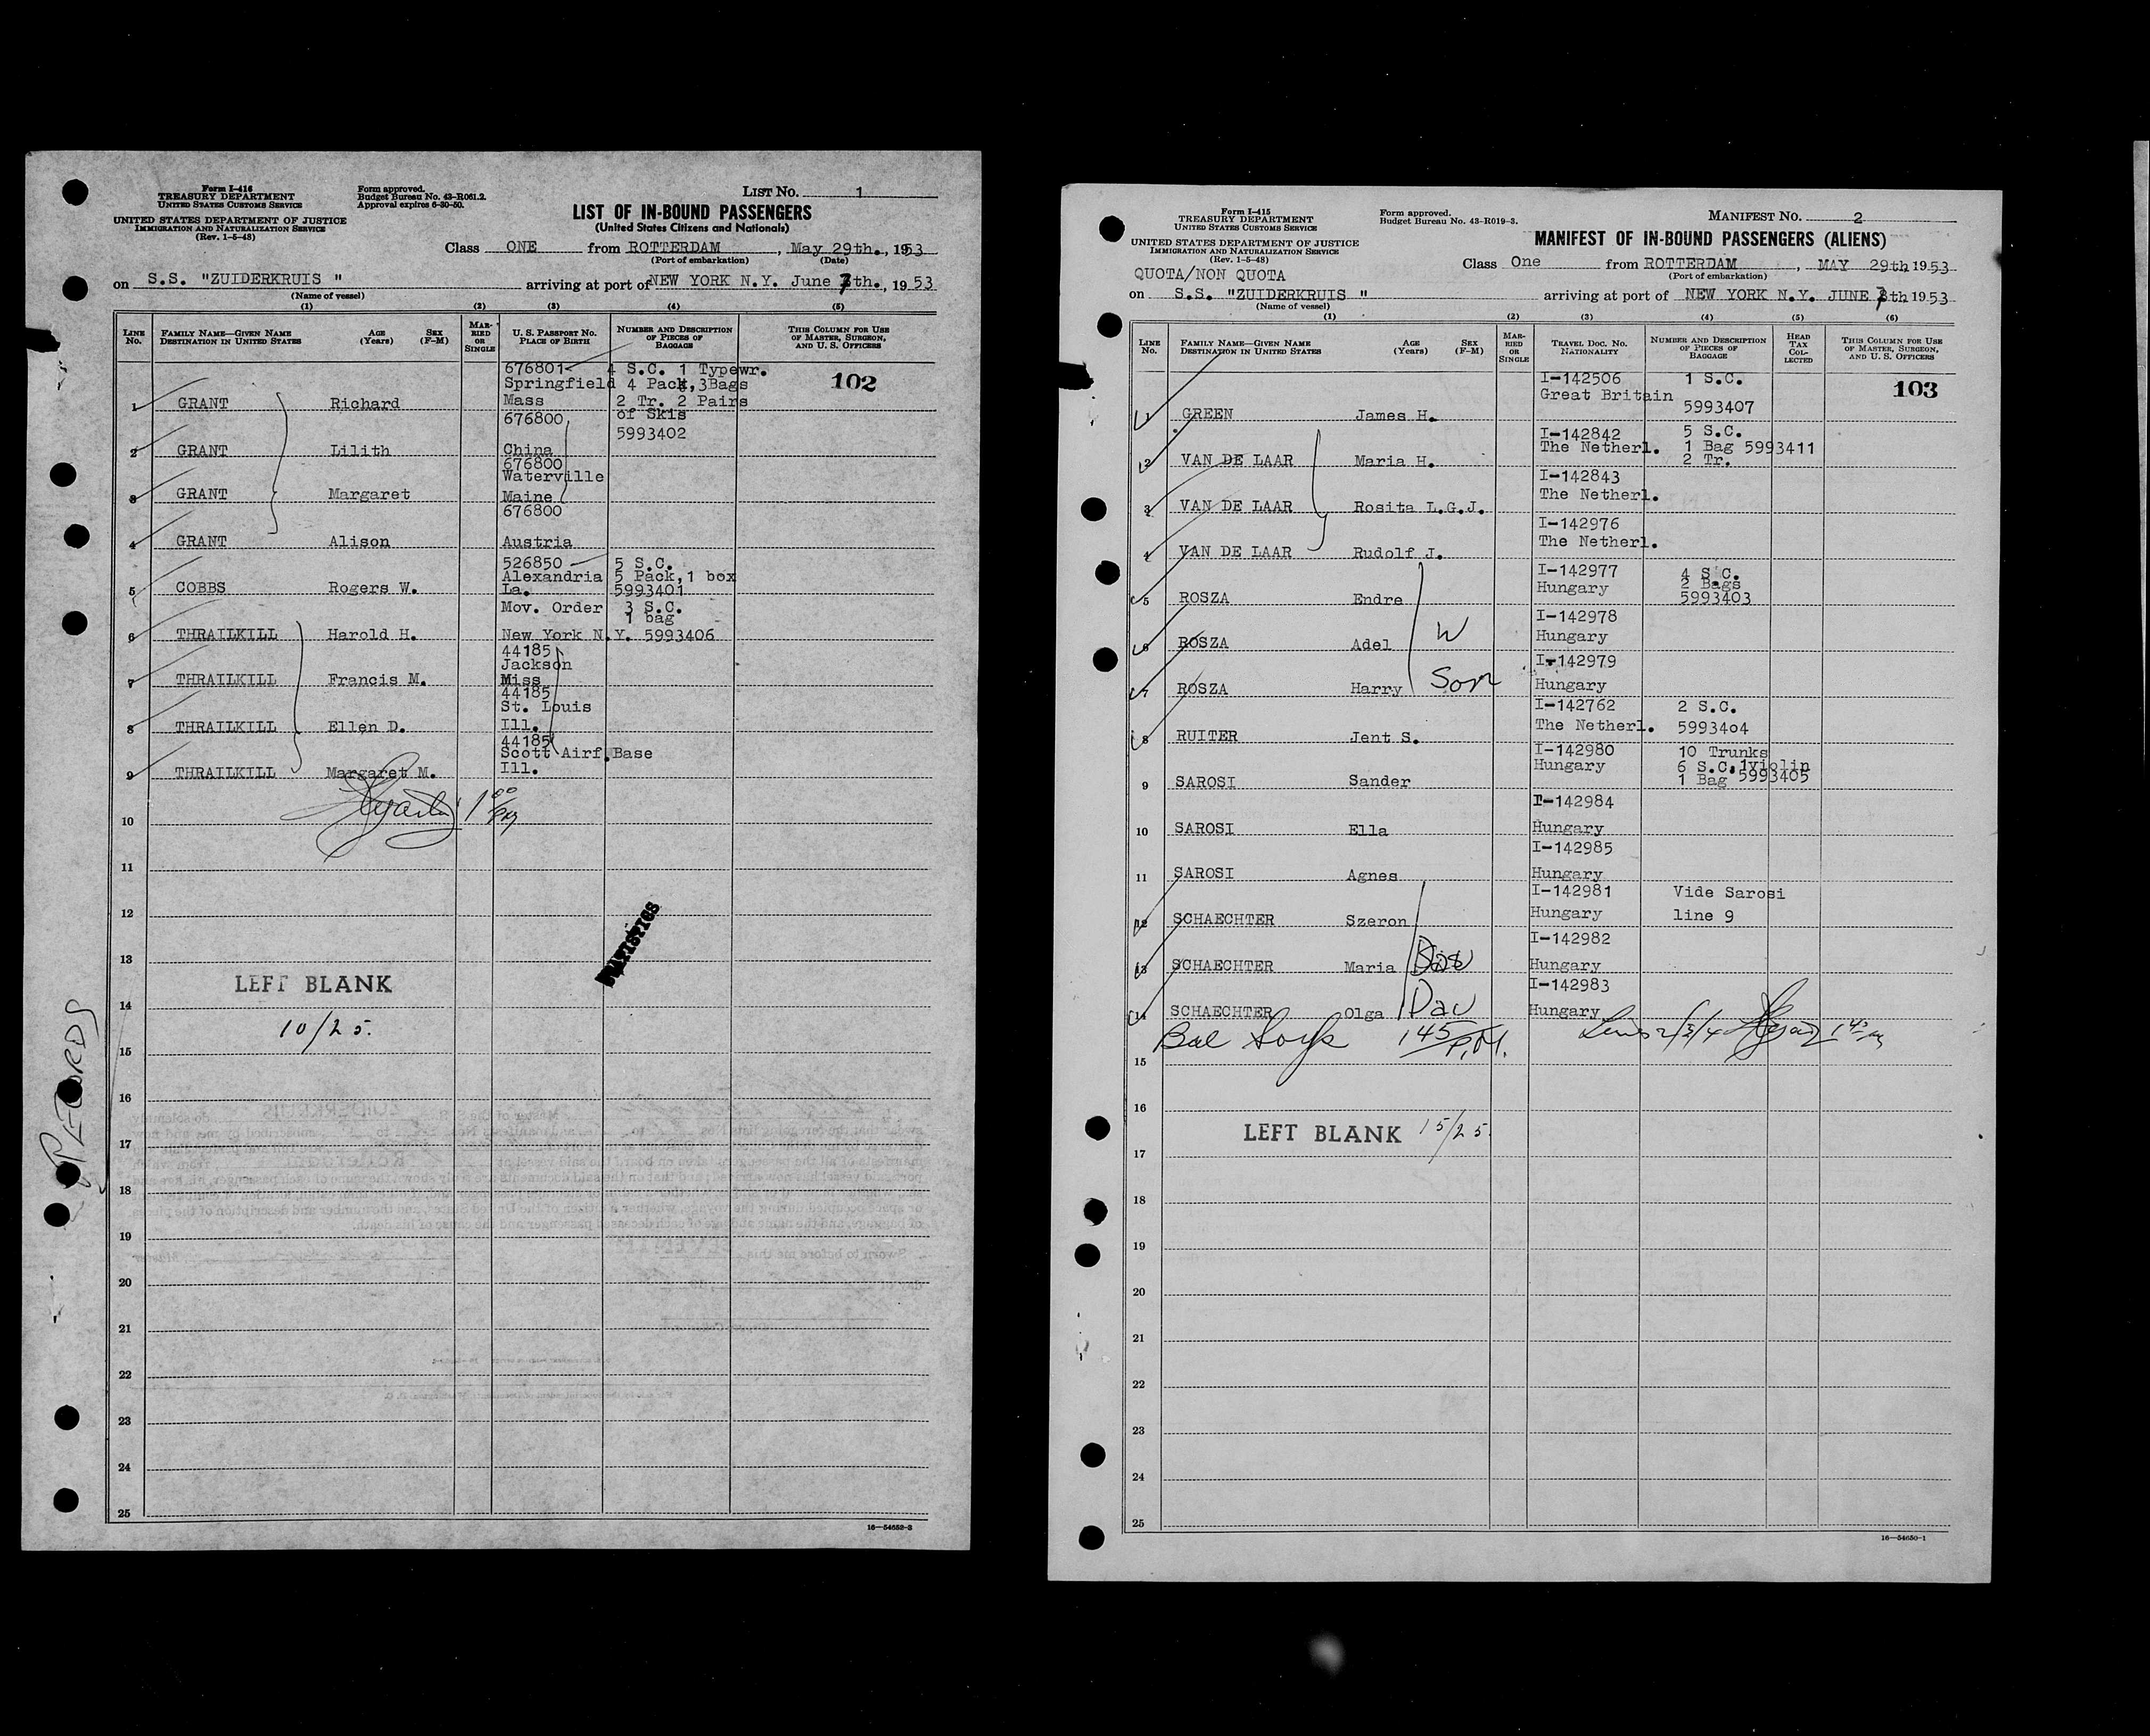 Form I-416
TREASURY DEPARTMENT
UNITED STATES CUSTOMS SERVICE
UNITED STATES DEPARTMENT OF JUSTICE
IMMIGRATION AND NATURALIZATION SERVICE
(Rev. 1-5-48)
Form approved.
Budget Bureau No. 43-R061.2.
Approval expires 6-30-50.
LIST No. 1
LIST OF IN-BOUND PASSENGERS
(United States Citizens and Nationals)
Class ONE from ROTTERDAM, May 29th., 1953
(Port of embarkation) (Date)
on S.S. "ZUIDERKRUIS " arriving at port of NEW YORK N.Y. June 7th., 1953
(Name of vessel)
(1) (2) (3) (4) (5)
LINE No. FAMILY NAME—GIVEN NAME DESTINATION IN UNITED STATES AGE (Years) SEX (F-M) MARRIED OR SINGLE U. S. PASSPORT NO. PLACE OF BIRTH NUMBER AND DESCRIPTION OF PIECES OF BAGGAGE THIS COLUMN FOR USE OF MASTER, SURGEON, AND U. S. OFFICERS
102
1 GRANT Richard 676801 Springfield Mass 4 S.C. 1 Typewr. 4 Pack, 3Bags 2 Tr. 2 Pairs of Skis 5993402
2 GRANT Lilith 676800 China
3 GRANT Margaret 676800 Waterville Maine
4 GRANT Alison 676800 Austria
5 COBBS Rogers W. 526850 Alexandria La. 5 S.C. 5 Pack, 1 box 5993401
6 THRAILKILL Harold H. Mov. Order New York N.Y. 3 S.C. 1 bag 5993406
7 THRAILKILL Francis M. 44185 Jackson Miss
8 THRAILKILL Ellen D. 44185 St. Louis Ill.
9 THRAILKILL Margaret M. 44185 Scott Airf.Base Ill.
1 00 PM
10
11
12
STATISTICS
13
LEFT BLANK
14
10/25.
15
RECORDS
16
17
18
19
20
21
22
23
24
25
16-54652-2
Form I-415
TREASURY DEPARTMENT
UNITED STATES CUSTOMS SERVICE
UNITED STATES DEPARTMENT OF JUSTICE
IMMIGRATION AND NATURALIZATION SERVICE
(Rev. 1-5-48)
QUOTA/NON QUOTA
Form approved.
Budget Bureau No. 43-R019-3.
MANIFEST No. 2
MANIFEST OF IN-BOUND PASSENGERS (ALIENS)
Class One from ROTTERDAM, MAY 29th 1953
(Port of embarkation)
on S.S. "ZUIDERKRUIS " arriving at port of NEW YORK N.Y. JUNE 7th 1953
(Name of vessel)
(1) (2) (3) (4) (5) (6)
LINE No. FAMILY NAME—GIVEN NAME DESTINATION IN UNITED STATES AGE (Years) SEX (F-M) MARRIED OR SINGLE TRAVEL DOC. NO. NATIONALITY NUMBER AND DESCRIPTION OF PIECES OF BAGGAGE HEAD TAX COLLECTED THIS COLUMN FOR USE OF MASTER, SURGEON, AND U. S. OFFICERS
103
1 GREEN James H. I-142506 Great Britain 1 S.C. 5993407
2 VAN DE LAAR Maria H. I-142842 The Netherl. 5 S.C. 1 Bag 5993411 2 Tr.
3 VAN DE LAAR Rosita L.G.J. I-142843 The Netherl.
4 VAN DE LAAR Rudolf J. I-142976 The Netherl.
5 ROSZA Endre I-142977 Hungary 4 S.C. 2 Bags 5993403
6 ROSZA Adel W I-142978 Hungary
7 ROSZA Harry Son I-142979 Hungary
8 RUITER Jent S. I-142762 The Netherl. 2 S.C. 5993404
9 SAROSI Sander I-142980 Hungary 10 Trunks 6 S.C. 1Violin 1 Bag 5993405
10 SAROSI Ella I-142984 Hungary
11 SAROSI Agnes I-142985 Hungary
12 SCHAECHTER Szeron I-142981 Hungary Vide Sarosi line 9
13 SCHAECHTER Maria I-142982 Hungary
14 SCHAECHTER Olga Dau I-142983 Hungary
Bal 145 P.M. Lines 2/3/4
15
16
LEFT BLANK 15/25.
17
18
19
20
21
22
23
24
25
16-54650-1